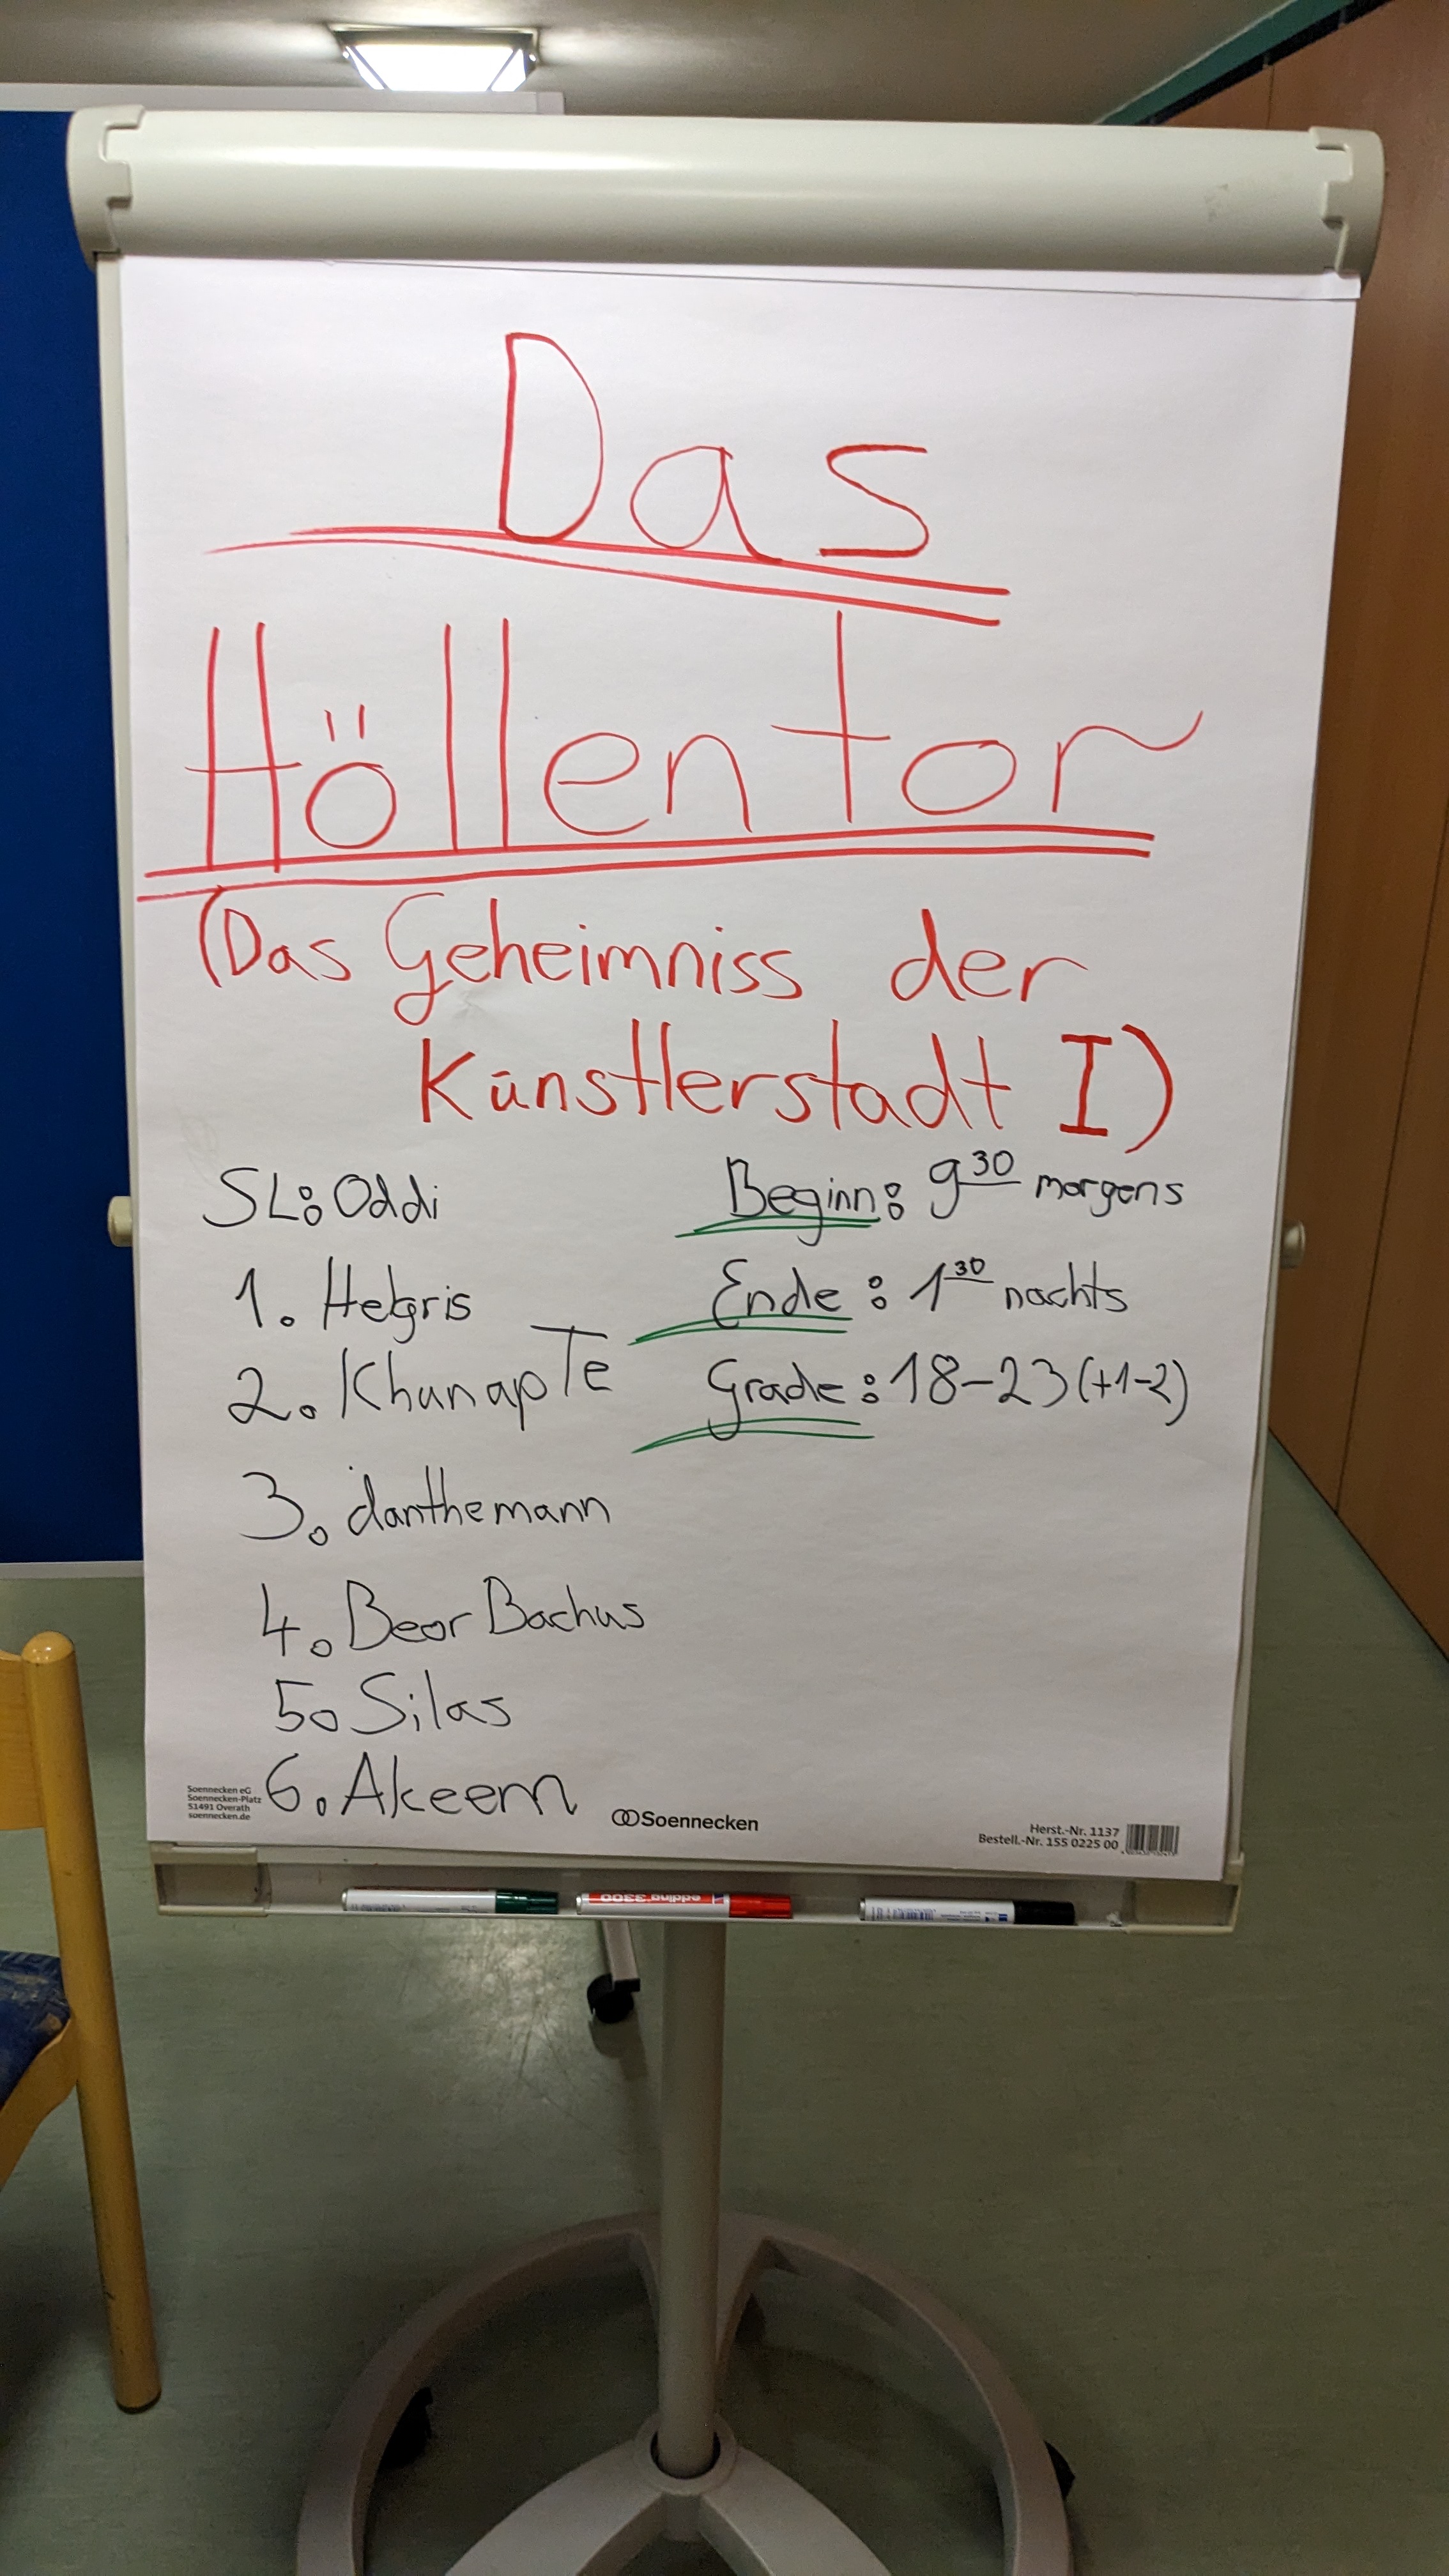 Das
Höllentor
(Das Geheimniss der
Künstlerstadt I)
SL: Oddi
1. Helgris
2. KhunapTe
3. danthemann
4. Beor Bachus
5. Silas
6. Akeem
Beginn: 9³⁰ morgens
Ende: 1³⁰ nachts
Grade: 18-23 (+1-2)
Soennecken eG
Soennecken-Platz
51491 Overath
soennecken.de
Soennecken
Herst.-Nr. 1137
Bestell.-Nr. 155 0225 00
edding 3300